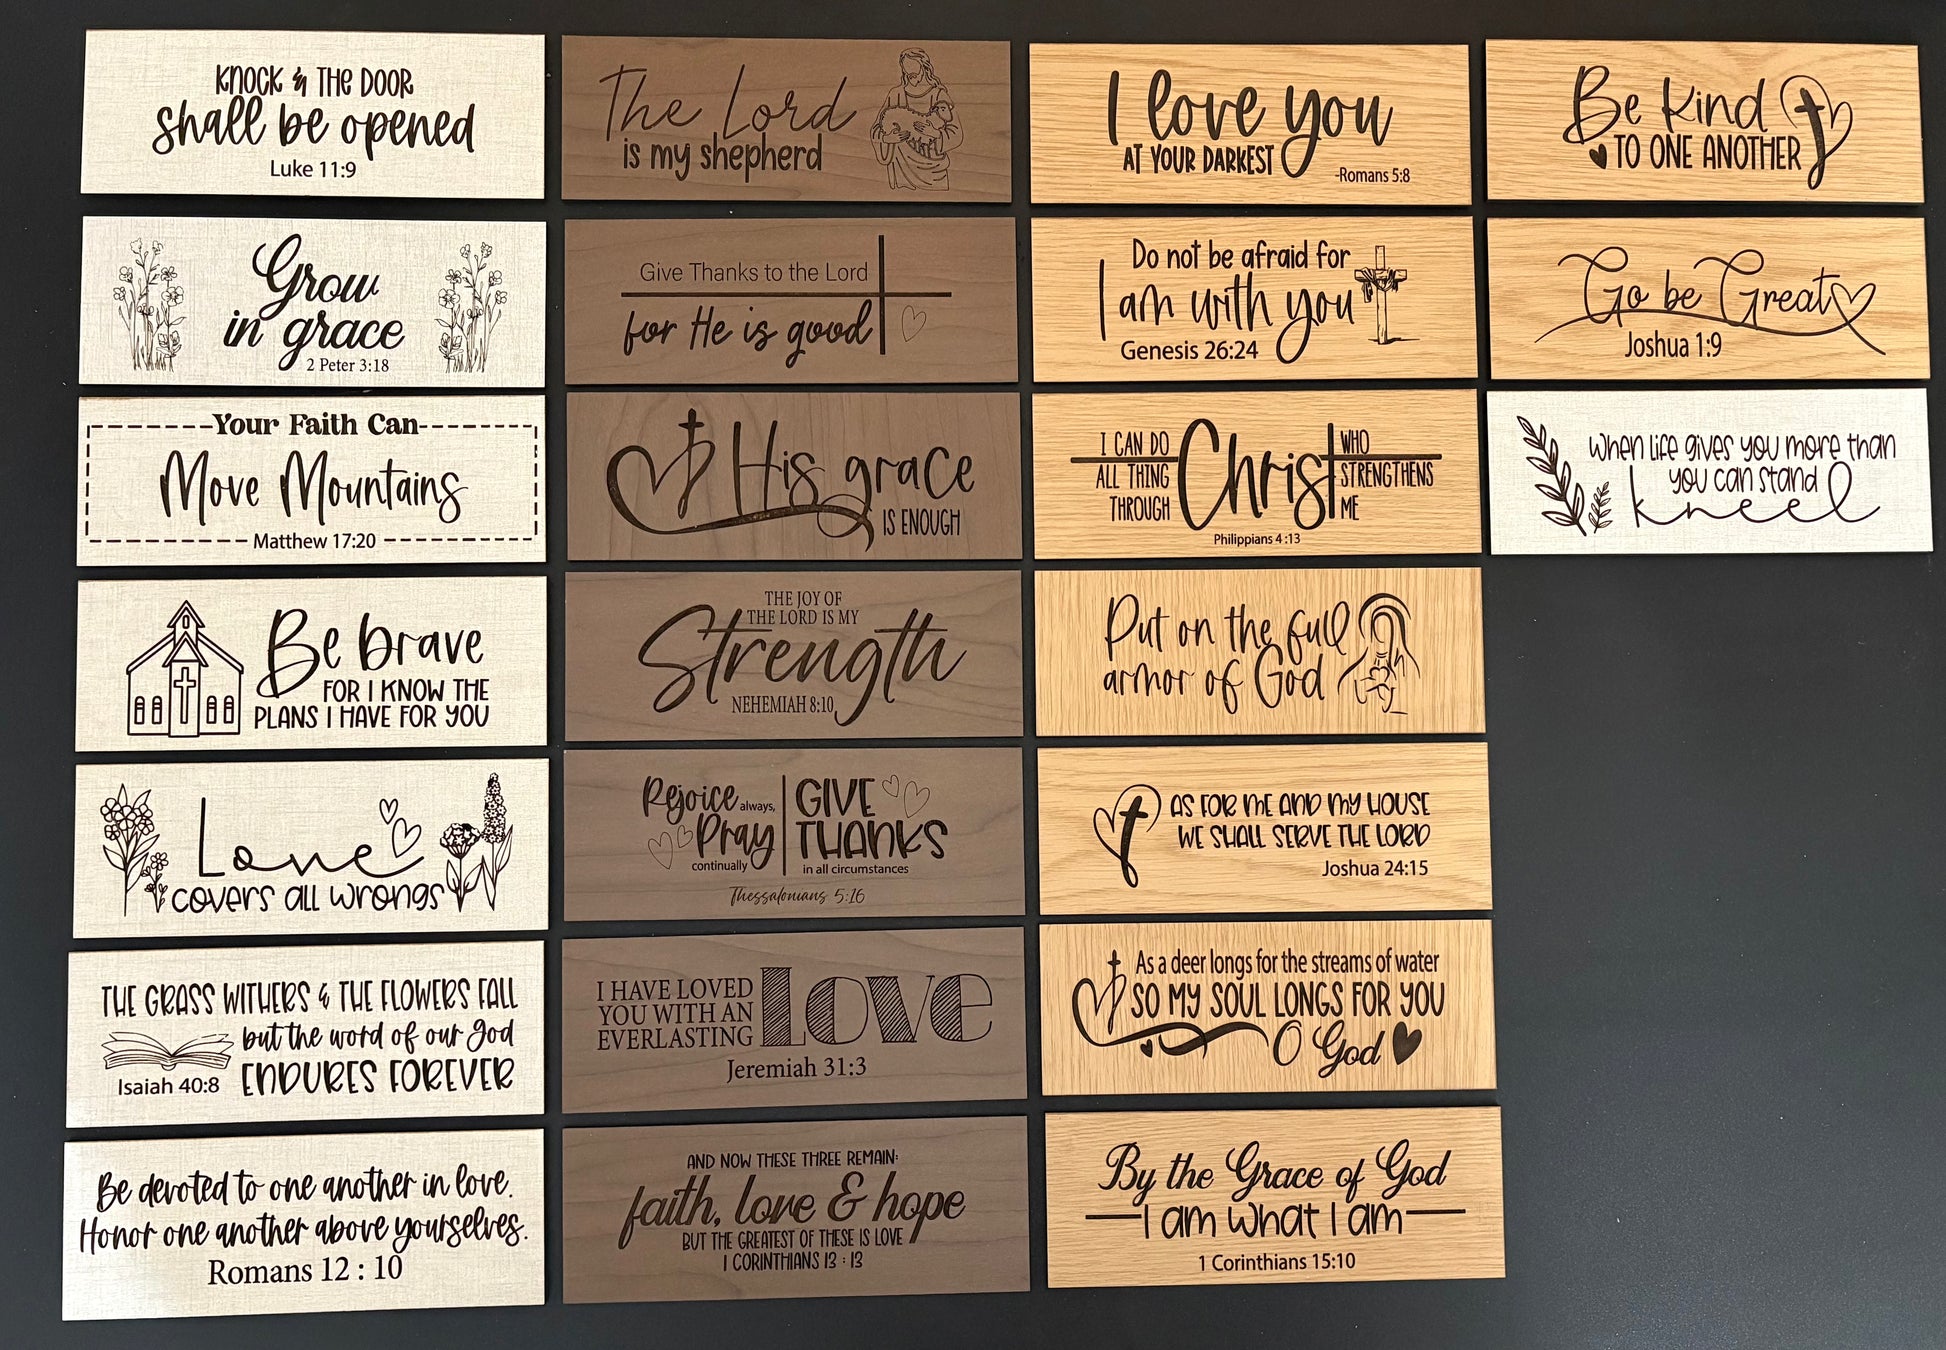 KNOCK & THE DOOR
shall be opened
Luke 11:9
Grow
in grace
2 Peter 3:18
Your Faith Can
Move Mountains
Matthew 17:20
Be brave
FOR I KNOW THE
PLANS I HAVE FOR YOU
Love
COVERS ALL WRONGS
THE GRASS WITHERS & THE FLOWERS FALL
but the word of our God
Isaiah 40:8
ENDURES FOREVER
Be devoted to one another in love.
Honor one another above yourselves.
Romans 12 : 10
The Lord
is my shepherd
Give Thanks to the Lord
for He is good
His grace
IS ENOUGH
THE JOY OF
THE LORD IS MY
Strength
NEHEMIAH 8:10
Rejoice always,
Pray
continually
GIVE
THANKS
in all circumstances
Thessalonians 5:16
I HAVE LOVED
YOU WITH AN
EVERLASTING
Love
Jeremiah 31:3
AND NOW THESE THREE REMAIN:
faith, love & hope
BUT THE GREATEST OF THESE IS LOVE
1 CORINTHIANS 13 : 13
I love you
AT YOUR DARKEST
-Romans 5:8
Do not be afraid for
I am with you
Genesis 26:24
I CAN DO
ALL THING
THROUGH
Christ
WHO
STRENGTHENS
ME
Philippians 4:13
Put on the full
armor of God
AS FOR ME AND MY HOUSE
WE SHALL SERVE THE LORD
Joshua 24:15
As a deer longs for the streams of water
SO MY SOUL LONGS FOR YOU
O God
By the Grace of God
I am what I am
1 Corinthians 15:10
Be Kind
TO ONE ANOTHER
Go be Great
Joshua 1:9
When life gives you more than
you can stand
kneel